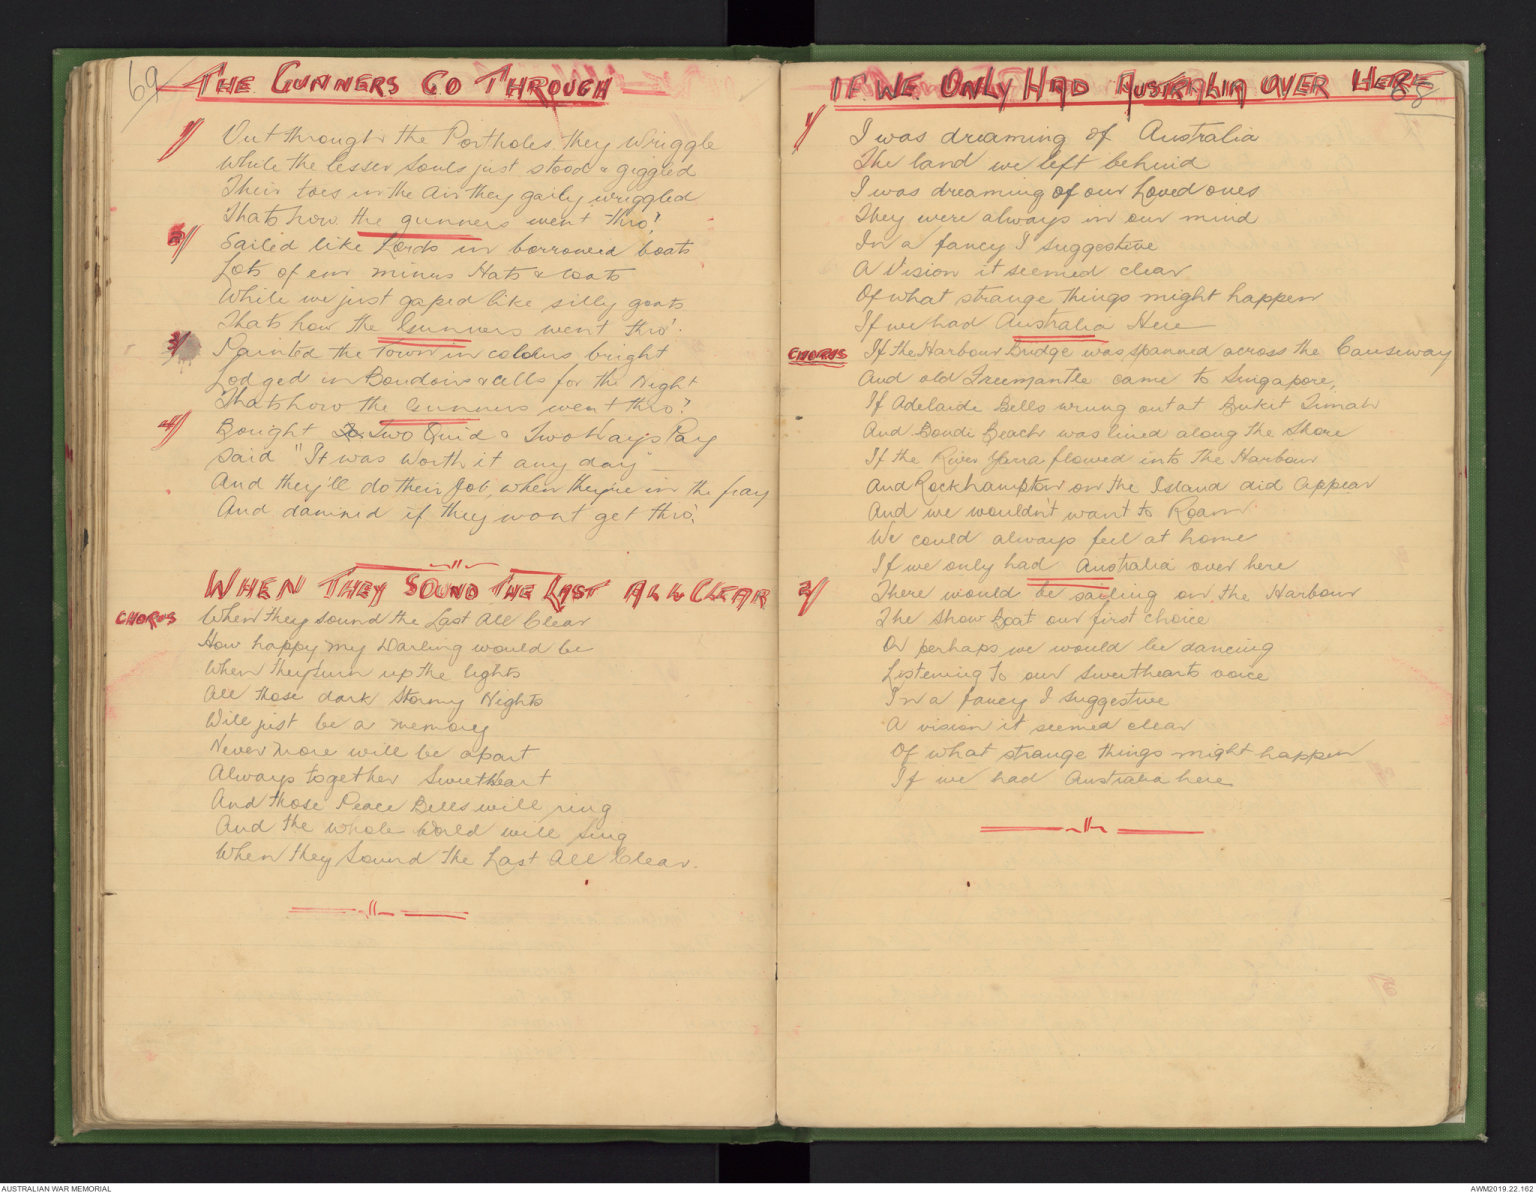 69
THE GUNNERS GO THROUGH
1/ Out through the Portholes they wriggle
While the lesser souls just stood & giggled
Their toes in the air they gaily wriggled
Thats how the gunners went thro'!
2/ Sailed like Lords in borrowed boats
Lots of em minus Hats & Coats
While we just gaped like silly goats
Thats how the Gunners went thro'.
3/ Painted the Town in colours bright
Lodged in Boudoirs & cells for the Night
Thats how the Gunners went thro'!
4/ Bought Two Quid & Two Days Pay
Said "It was worth it any day"
And they'll do their Job, when they're in the fray
And damned if they wont get thro'.
WHEN THEY SOUND THE LAST ALL CLEAR
CHORUS When they sound the Last All Clear
How happy my Darling would be
When they turn up the lights
All those dark Stormy Nights
Will just be a memory
Never more will be apart
Always together Sweetheart
And those Peace Bells will ring
And the whole World will sing
When they Sound the Last All Clear.
88
IF WE ONLY HAD AUSTRALIA OVER HERE
1/ I was dreaming of Australia
The land we left behind
I was dreaming of our Loved ones
They were always in our mind
In a fancy I suggestive
A Vision it seemed clear
Of what strange things might happen
If we had Australia Here
CHORUS If the Harbour Bridge was spanned across the Causeway
And old Freemantle came to Singapore,
If Adelaide Bells wrung out at Bukit Timah
And Bondi Beach was lined along the Shore
If the River Yarra flowed into the Harbour
And Rockhampton on the Island did appear
And we wouldn't want to Roam
We could always feel at home
If we only had Australia over here
2/ There would be sailing on the Harbour
The Show Boat our first choice
Or perhaps we would be dancing
Listening to our sweethearts voice
In a fancy I suggestive
A vision it seemed clear
Of what strange things might happen
If we had Australia here
AUSTRALIAN WAR MEMORIAL
AWM2019.22.162